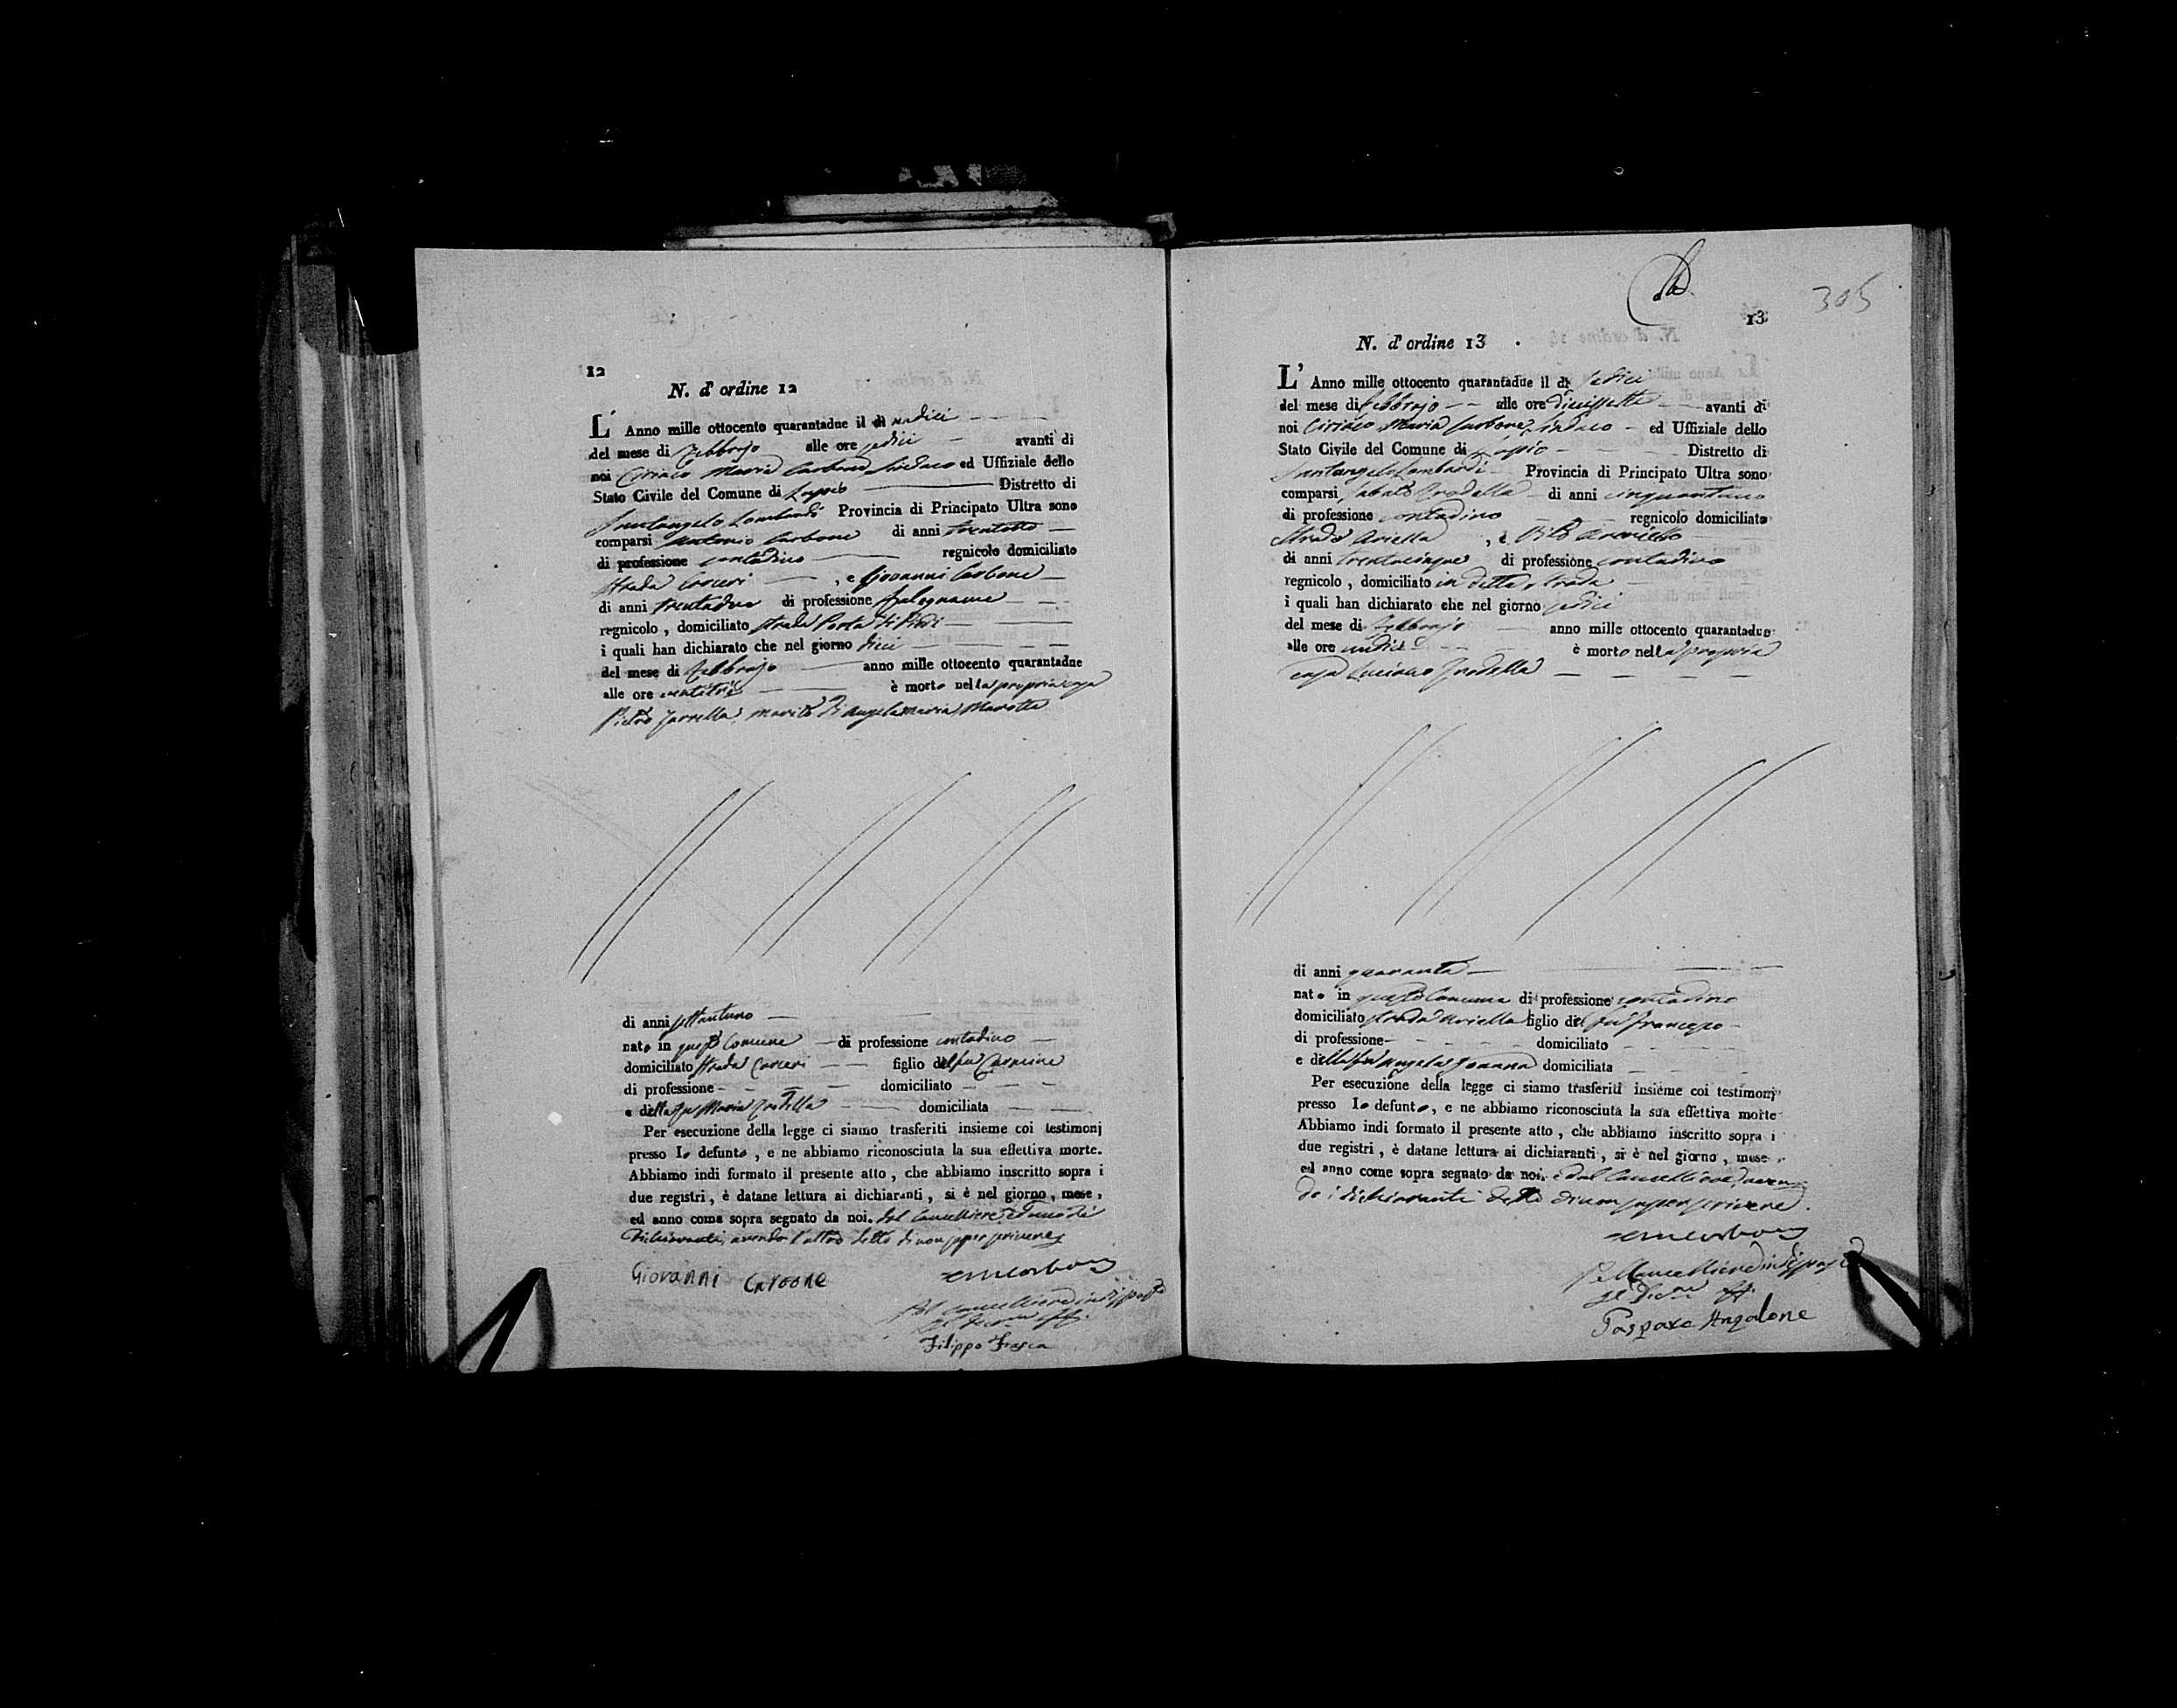 12
N. d' ordine 12
L' Anno mille ottocento quarantadue il dì undici
del mese di Febbrajo alle ore sedici avanti di
noi Ciriaco Maria Carbone Sindaco ed Uffiziale dello
Stato Civile del Comune di Lapio Distretto di
Santangelo Lombardi Provincia di Principato Ultra sono
comparsi Antonio Carbone di anni trentotto
di professione contadino regnicolo domiciliato
Strada Carceri , e Giovanni Carbone
di anni trentadue di professione falegname
regnicolo , domiciliato strada Porta di Piedi
i quali han dichiarato che nel giorno dieci
del mese di Febbrajo anno mille ottocento quarantadue
alle ore ventitrè è morto nella propria casa
Pietro marito di Angelamaria Marotta
di anni settantuno
nato in questo Comune di professione contadino
domiciliato Strada Carceri figlio del fu Carmine
di professione domiciliato
e della fu Maria Trodella domiciliata
Per esecuzione della legge ci siamo trasferiti insieme coi testimonj
presso lo defunto , e ne abbiamo riconosciuta la sua effettiva morte.
Abbiamo indi formato il presente atto , che abbiamo inscritto sopra i
due registri , è datane lettura ai dichiaranti , si è nel giorno , mese ,
ed anno come sopra segnato da noi. dal Cancelliere ed uno dei
dichiaranti, avendo l'altro detto di non saper scrivere
Giovanni Carbone
Pel Cancelliere indisposto
Filippo Fresca
305
13
N. d' ordine 13
L' Anno mille ottocento quarantadue il dì sedici
del mese di Febbrajo alle ore diecissette avanti di
noi Ciriaco Maria Carbone Sindaco ed Uffiziale dello
Stato Civile del Comune di Lapio Distretto di
Santangelo Lombardi Provincia di Principato Ultra sono
comparsi Sabato Trodella di anni cinquantuno
di professione contadino regnicolo domiciliato
Strada Ariella , e Vito
di anni trentacinque di professione contadino
regnicolo , domiciliato in detta Strada
i quali han dichiarato che nel giorno sedici
del mese di Febbrajo anno mille ottocento quarantadue
alle ore undici è morto nella propria
casa Luciano Trodella
di anni quaranta
nato in questo Comune di professione contadino
domiciliato strada Ariella figlio del fu Francesco
di professione domiciliato
e della fu Angela Joanna domiciliata
Per esecuzione della legge ci siamo trasferiti insieme coi testimonj
presso lo defunto, e ne abbiamo riconosciuta la sua effettiva morte
Abbiamo indi formato il presente atto , che abbiamo inscritto sopra i
due registri , è datane lettura ai dichiaranti , si è nel giorno , mese
ed anno come sopra segnato da noi. e dal Cancelliere, aven
do i dichiaranti detto di non saper scrivere.
Pel Cancelliere indisposto
Gaspare Angalone